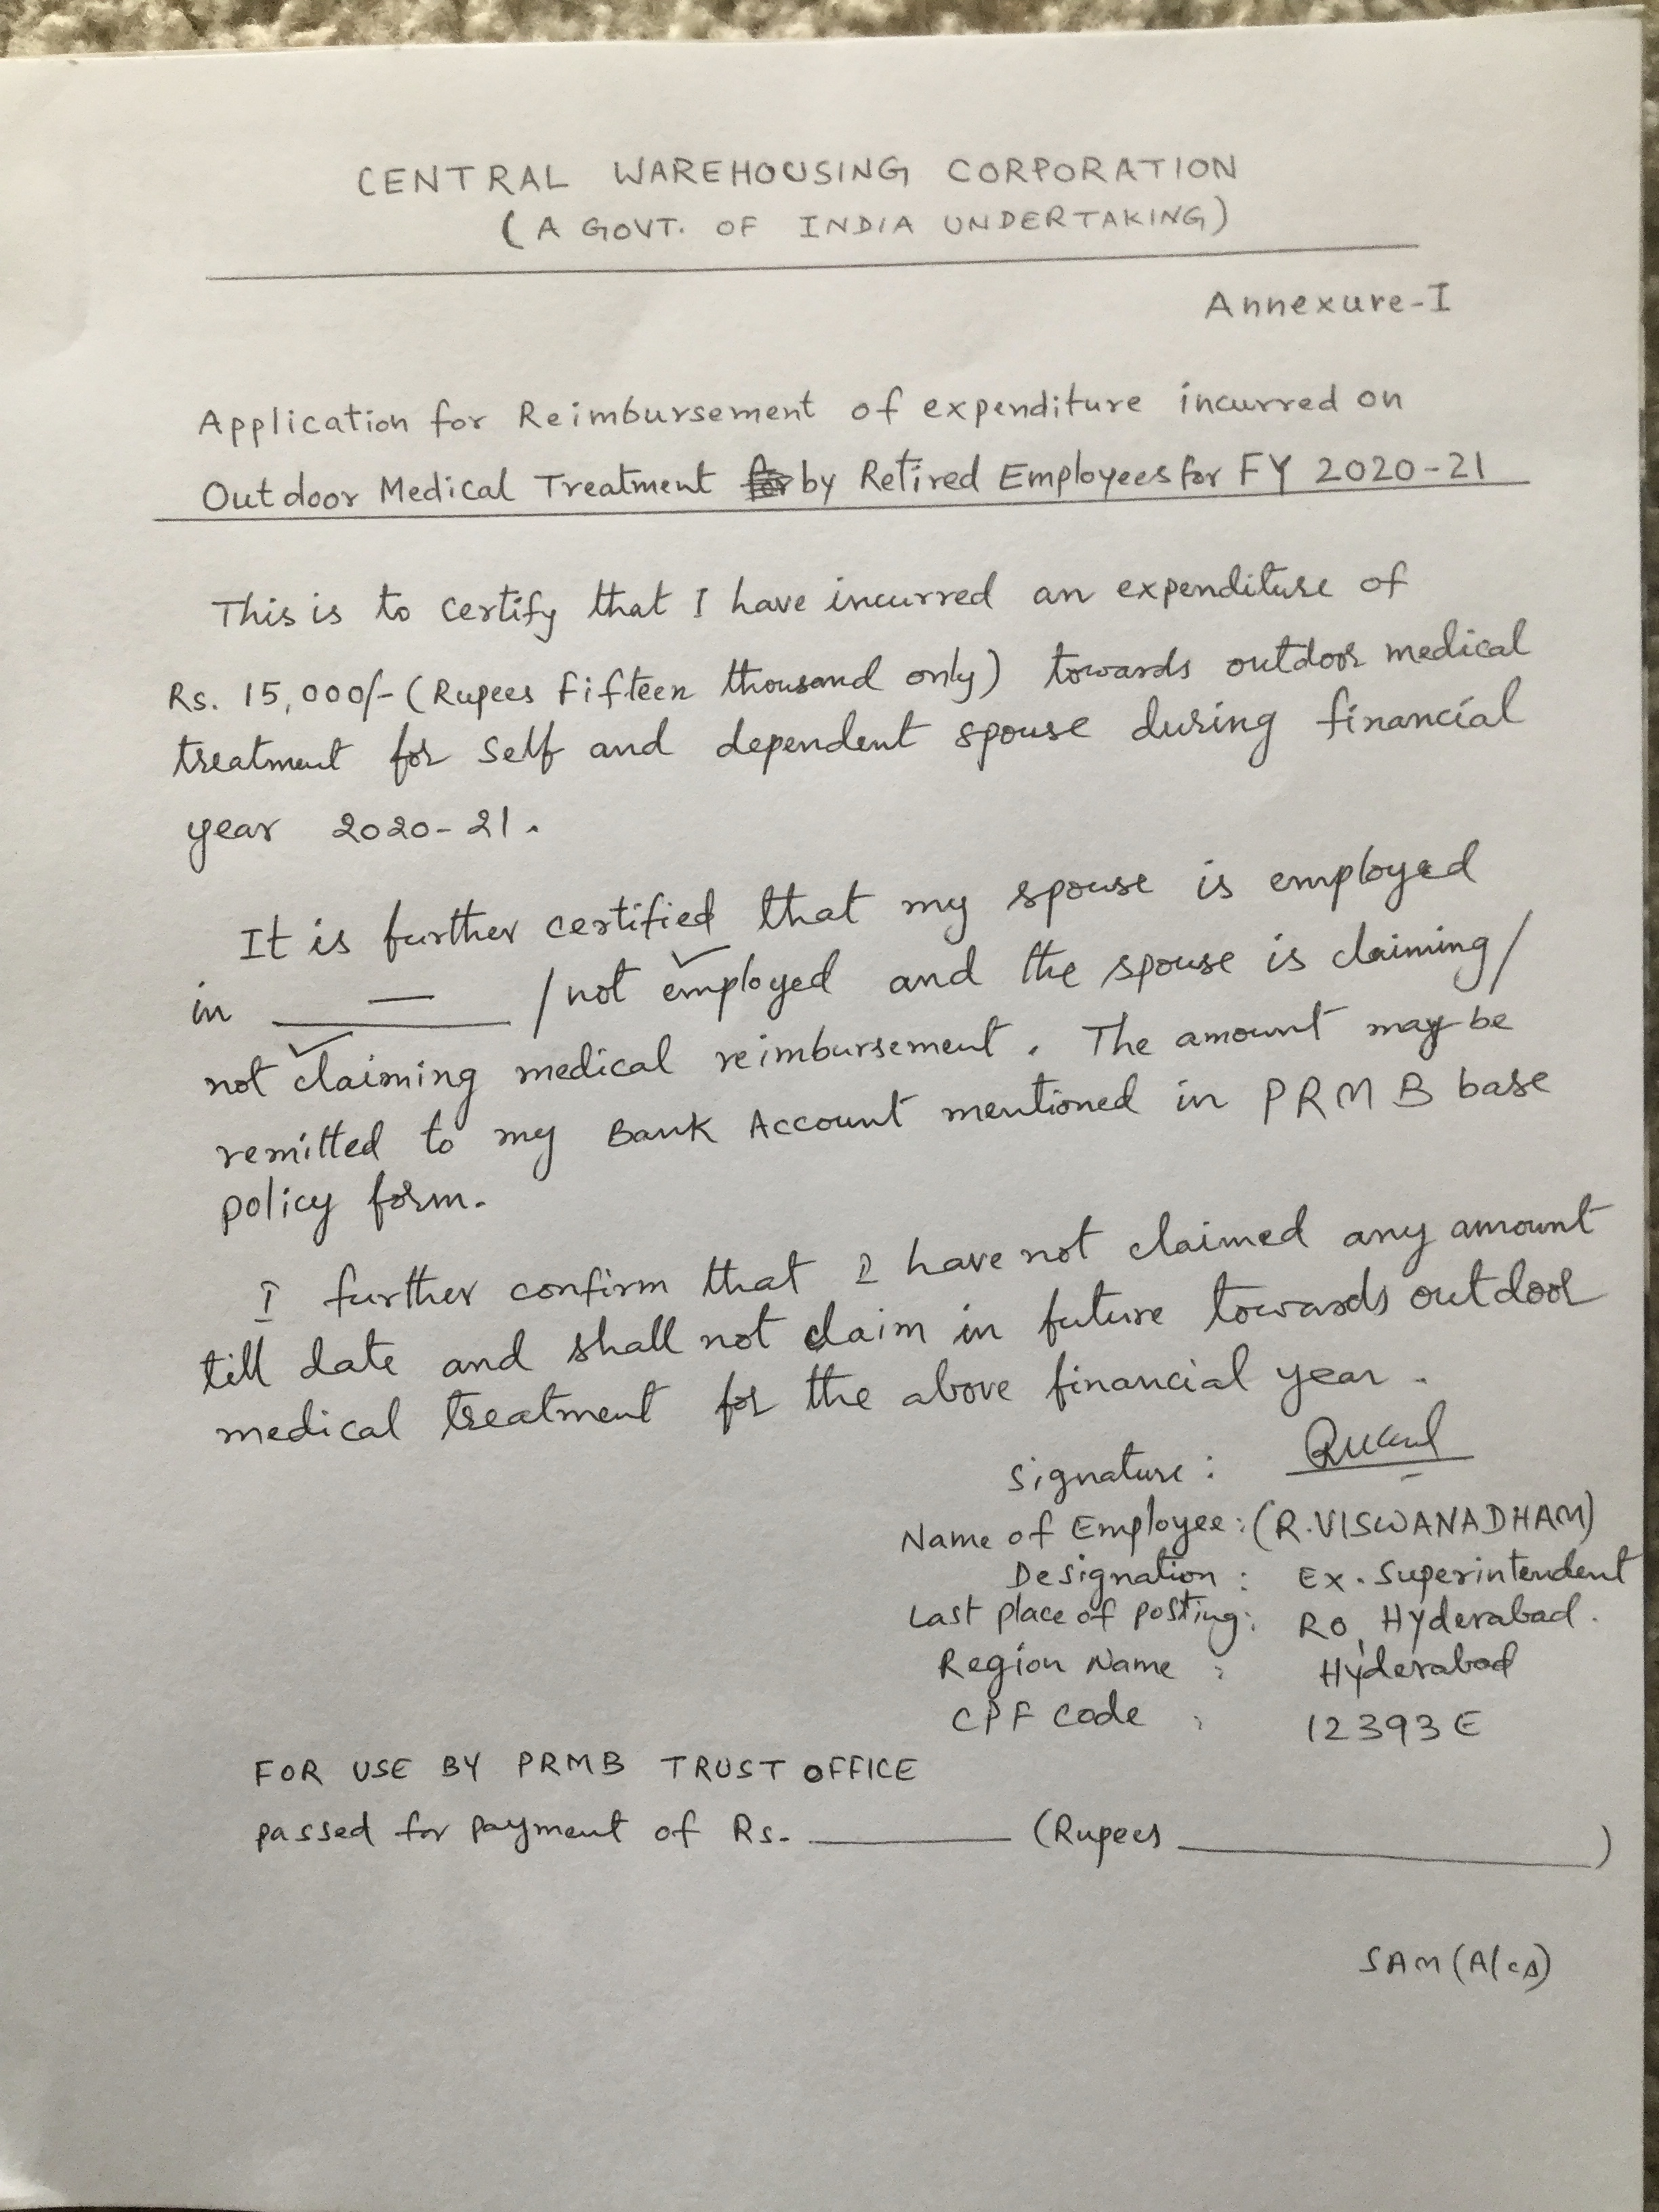 CENTRAL WAREHOUSING CORPORATION
(A GOVT. OF INDIA UNDERTAKING)
Annexure-I
Application for Reimbursement of expenditure incurred on
Outdoor Medical Treatment by Retired Employees for FY 2020-21
This is to certify that I have incurred an expenditure of
Rs. 15,000/- (Rupees Fifteen thousand only) towards outdoor medical
treatment for self and dependent spouse during financial
year 2020-21.
It is further certified that my spouse is employed
in — /not employed and the spouse is claiming/
not claiming medical reimbursement. The amount may be
remitted to my Bank Account mentioned in PRMB base
policy form.
I further confirm that I have not claimed any amount
till date and shall not claim in future towards outdoor
medical treatment for the above financial year.
Signature:
Name of Employee: (R.VISWANADHAM)
Designation : Ex. Superintendent
Last place of posting: RO, Hyderabad.
Region Name : Hyderabad
CPF Code : 12393E
FOR USE BY PRMB TRUST OFFICE
passed for payment of Rs. ________ (Rupees ________)
SAM (A/cs)